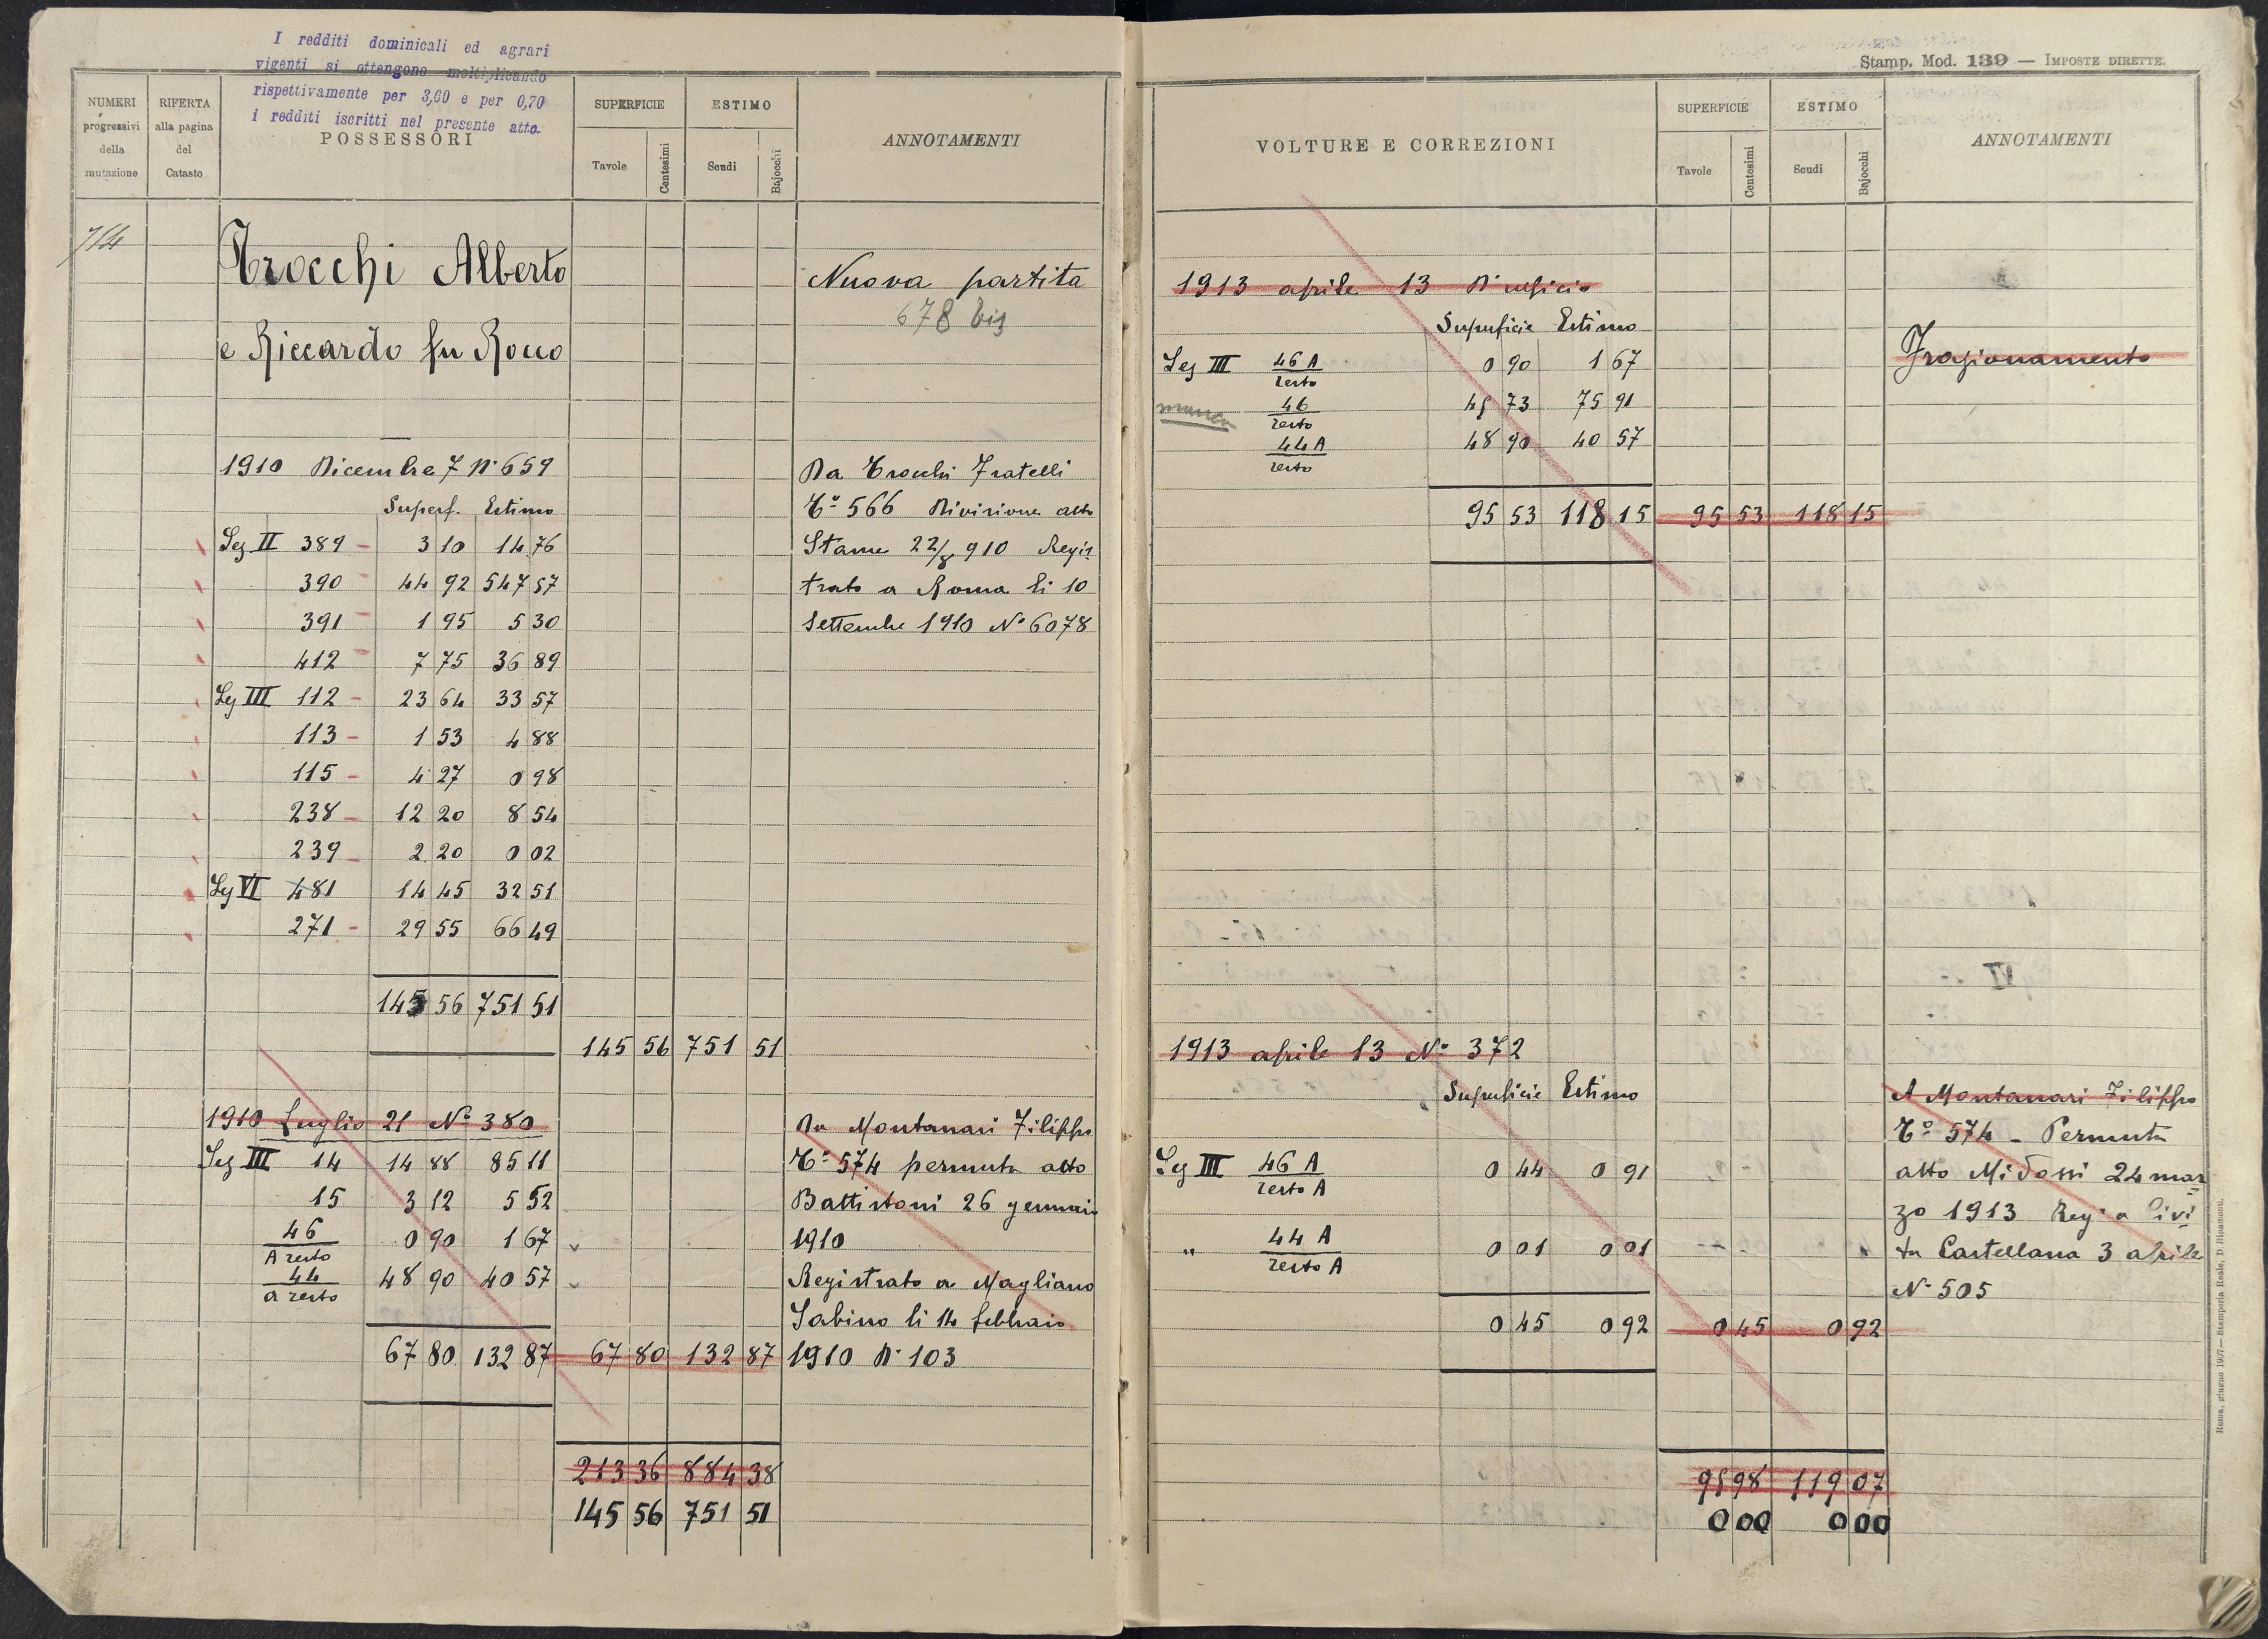 I redditi dominicali ed agrari
vigenti si ottengono moltiplicando
rispettivamente per 3,60 e per 0,70
i redditi iscritti nel presente atto.
NUMERI progressivi della mutazione
RIFERTA alla pagina del Catasto
POSSESSORI
SUPERFICIE
Tavole Centesimi
ESTIMO
Scudi Bajocchi
ANNOTAMENTI
714
Trocchi Alberto
e Riccardo fu Rocco
Nuova partita
678 bis
1910 Dicembre 7 N° 659
Superf. Estimo
Sez II 389 - 3 10 14 76
390 - 44 92 547 57
391 - 1 95 5 30
412 - 7 75 36 89
Sez III 112 - 23 64 33 57
113 - 1 53 4 88
115 - 4 27 0 98
238 - 12 20 8 54
239 - 2 20 0 02
Sez VI 481 14 45 32 51
271 - 29 55 66 49
145 56 751 51
145 56 751 51
Da Trocchi Fratelli
T° 566 Divisione atto
Stame 22/8 910 Regis
trato a Roma li 10
Settembre 1910 N° 6078
1910 Luglio 21 N° 380
Sez III 14 14 88 85 11
15 3 12 5 52
46 / A resto 0 90 1 67
44 / a resto 48 90 40 57
67 80 132 87 67 80 132 87
Da Montanari Filippo
T° 574 permuta atto
Battistoni 26 gennaio
1910
Registrato a Magliano
Sabino li 14 febbraio
1910 N° 103
213 36 884 38
145 56 751 51
Stamp. Mod. 139 — IMPOSTE DIRETTE.
VOLTURE E CORREZIONI
SUPERFICIE
Tavole Centesimi
ESTIMO
Scudi Bajocchi
ANNOTAMENTI
1913 aprile 13 D'ufficio
Superficie Estimo
Sez III 46 A / resto 0 90 1 67
46 / resto 45 73 75 91
44 A / resto 48 90 40 57
95 53 118 15 95 53 118 15
Frazionamento
1913 aprile 13 N° 372
Superficie Estimo
Sez III 46 A / resto A 0 44 0 91
" 44 A / resto A 0 01 0 01
0 45 0 92 0 45 0 92
A Montanari Filippo
T° 574 - Permuta
atto Midossi 24 mar
zo 1913 Reg° a Civi
ta Castellana 3 aprile
N° 505
95 98 119 07
0 00 0 00
Roma, giugno 1907 — Stamperia Reale, D. Ripamonti.